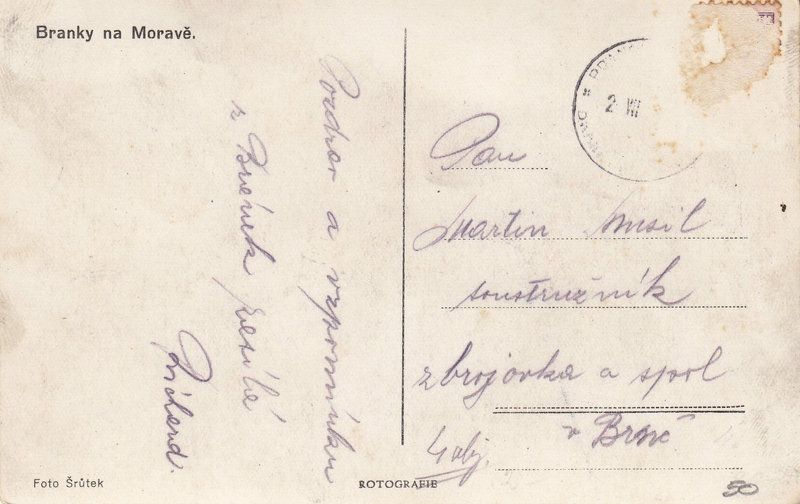 Branky na Moravě.
Pozdrav a vzpomínku
z Branek zasílá
2 VIII
Pan
Martin Musil
soustružník
zbrojovka a spol
v Brně
Foto Šrůtek
ROTOGRAFIE
50